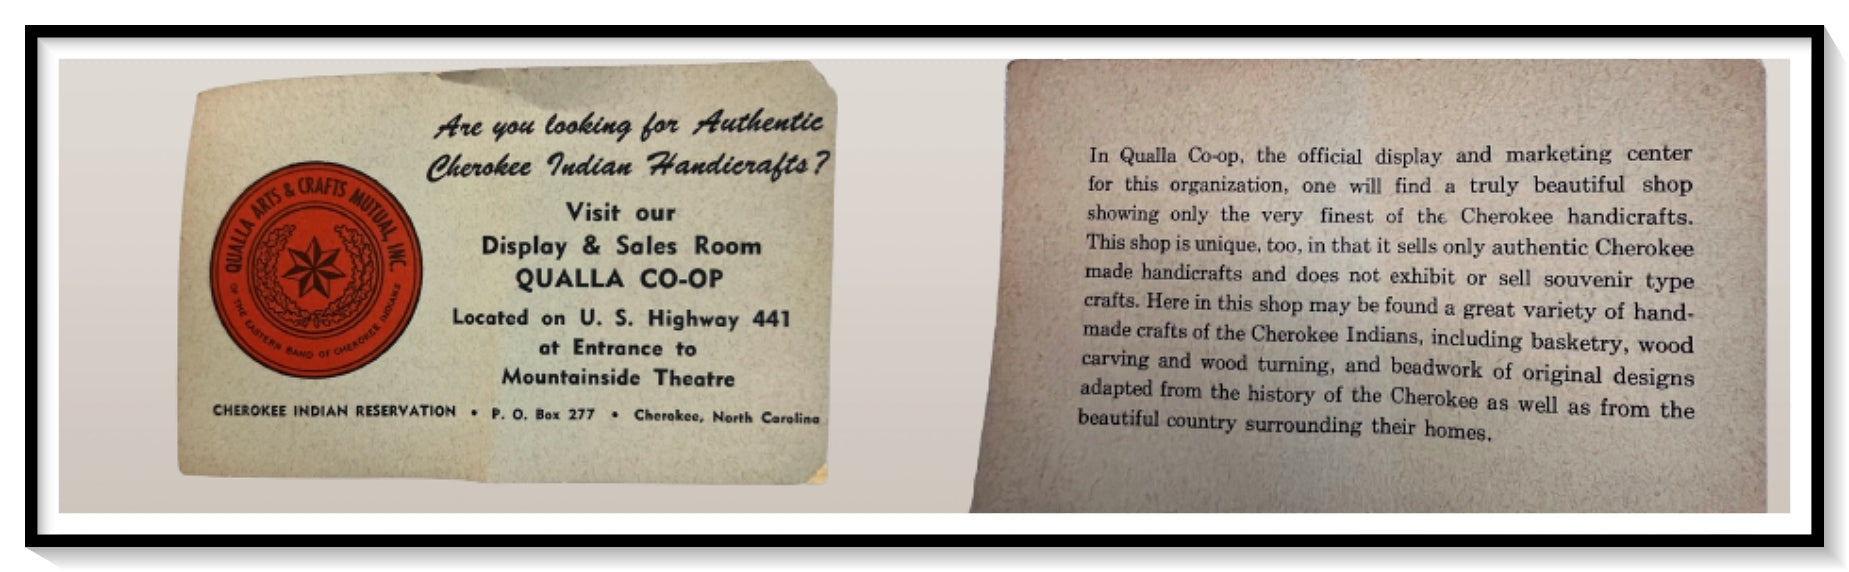 Are you looking for Authentic
Cherokee Indian Handicrafts?
Visit our
Display & Sales Room
QUALLA CO-OP
Located on U. S. Highway 441
at Entrance to
Mountainside Theatre
QUALLA ARTS & CRAFTS MUTUAL, INC.
OF THE EASTERN BAND OF CHEROKEE INDIANS
CHEROKEE INDIAN RESERVATION • P. O. Box 277 • Cherokee, North Carolina
In Qualla Co-op, the official display and marketing center
for this organization, one will find a truly beautiful shop
showing only the very finest of the Cherokee handicrafts.
This shop is unique, too, in that it sells only authentic Cherokee
made handicrafts and does not exhibit or sell souvenir type
crafts. Here in this shop may be found a great variety of hand-
made crafts of the Cherokee Indians, including basketry, wood
carving and wood turning, and beadwork of original designs
adapted from the history of the Cherokee as well as from the
beautiful country surrounding their homes.